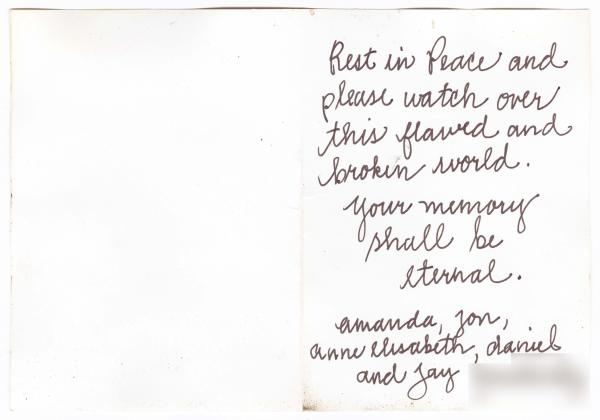 Rest in Peace and
please watch over
this flawed and
broken world.
Your memory
shall be
eternal.
amanda, jon,
anne elisabeth, daniel
and jay